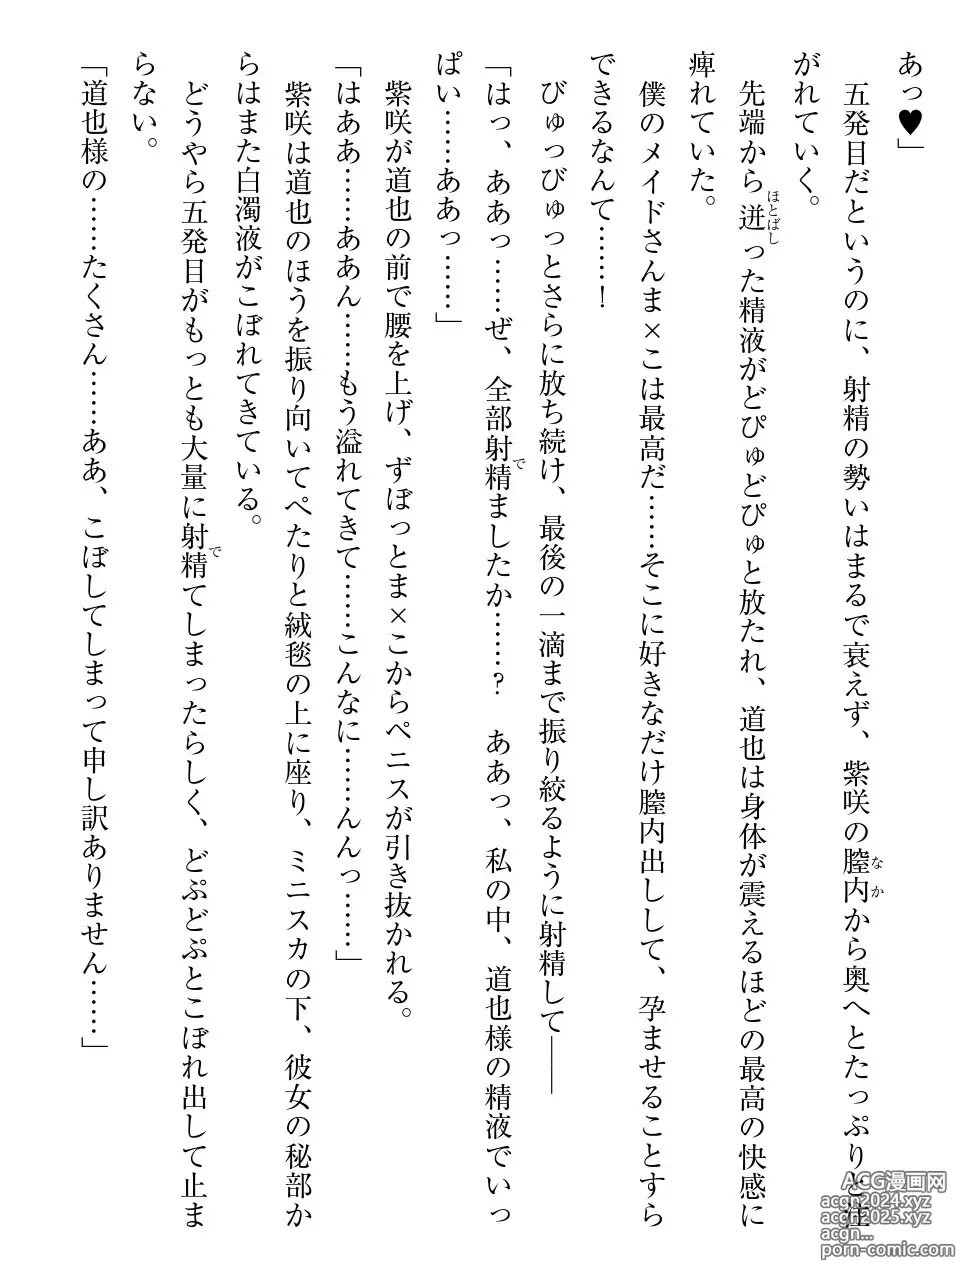 あっ♥」
　五発目だというのに、射精の勢いはまるで衰えず、紫咲の膣内から奥へとたっぷりと注
がれていく。
　先端から迸った精液がどぴゅどぴゅと放たれ、道也は身体が震えるほどの最高の快感に
痺れていた。
　僕のメイドさんま×こは最高だ……そこに好きなだけ膣内出しして、孕ませることすら
できるなんて……！
　びゅっびゅっとさらに放ち続け、最後の一滴まで振り絞るように射精して――
「はっ、ああっ……ぜ、全部射精ましたか……？　ああっ、私の中、道也様の精液でいっ
ぱい……ああっ……」
　紫咲が道也の前で腰を上げ、ずぼっとま×こからペニスが引き抜かれる。
「はああ……ああん……もう溢れてきて……こんなに……んんっ……」
　紫咲は道也のほうを振り向いてぺたりと絨毯の上に座り、ミニスカの下、彼女の秘部か
らはまた白濁液がこぼれてきている。
　どうやら五発目がもっとも大量に射精てしまったらしく、どぷどぷとこぼれ出して止ま
らない。
「道也様の……たくさん……ああ、こぼしてしまって申し訳ありません……」
なか
ほとばし
で
で
ACG漫画网
acgn2024.xyz
acgn2025.xyz
acgn...
porn-comic.com